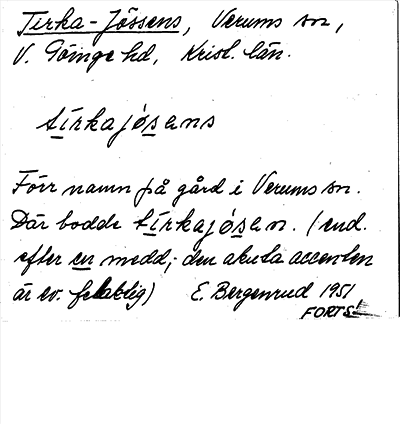 Tirka-Jössens, Verums sn,
V. Göinge hd, Krist. län.
tírkajósens
Förr namn på gård i Verums sn.
Där bodde tírkajósen. (end.
efter en medd.; den akuta accenten
är ev. felaktig) E. Bergenrud 1951
FORTS!